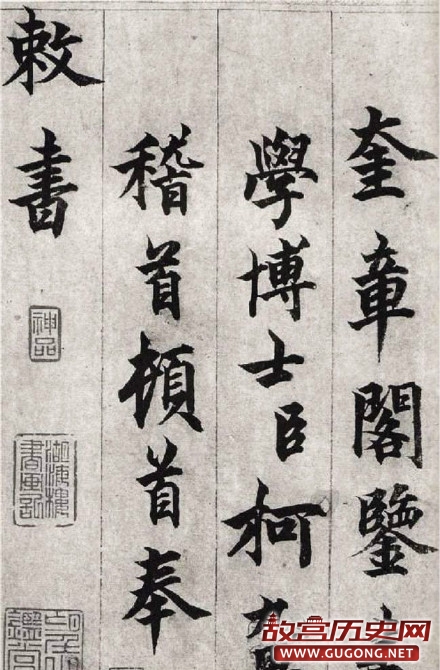 奎章閣鑒
學博士臣柯
稽首頓首奉
敕書
神品
故宫历史网
WWW.GUGONG.NET